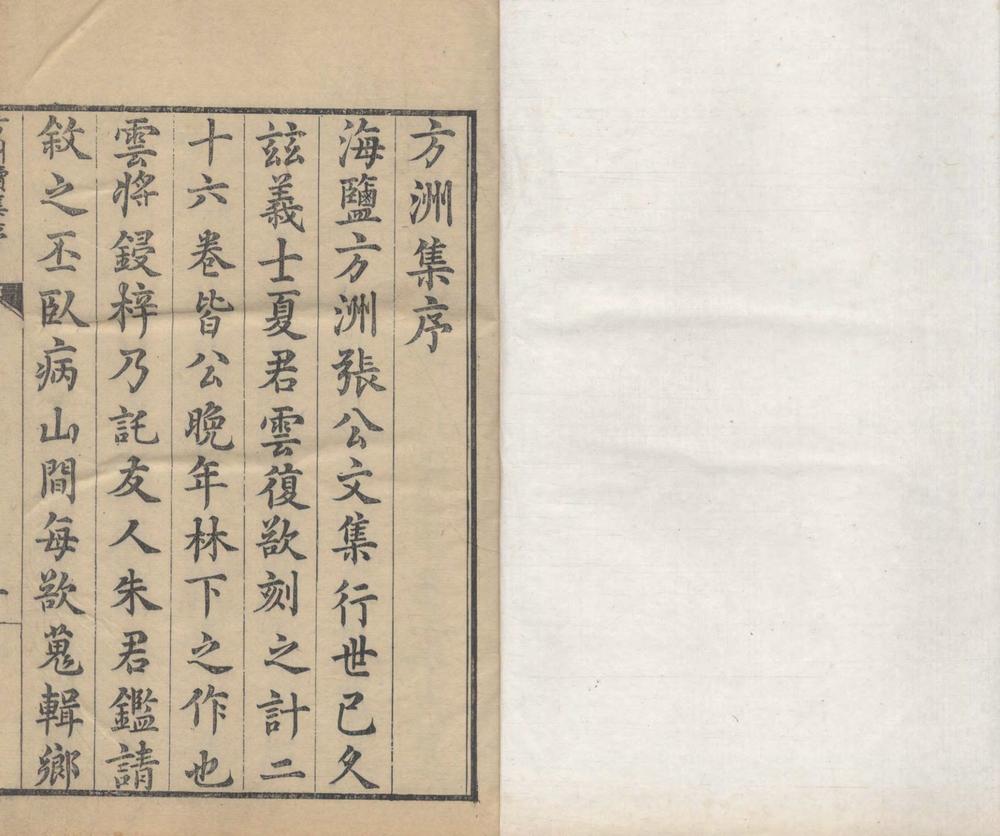 方洲集序
海鹽方洲張公文集行世已久
玆義士夏君雲復欲刻之計二
十六卷皆公晩年林下之作也
雲將鋟梓乃託友人朱君鑑請
敘之丕臥病山間每欲蒐輯鄉